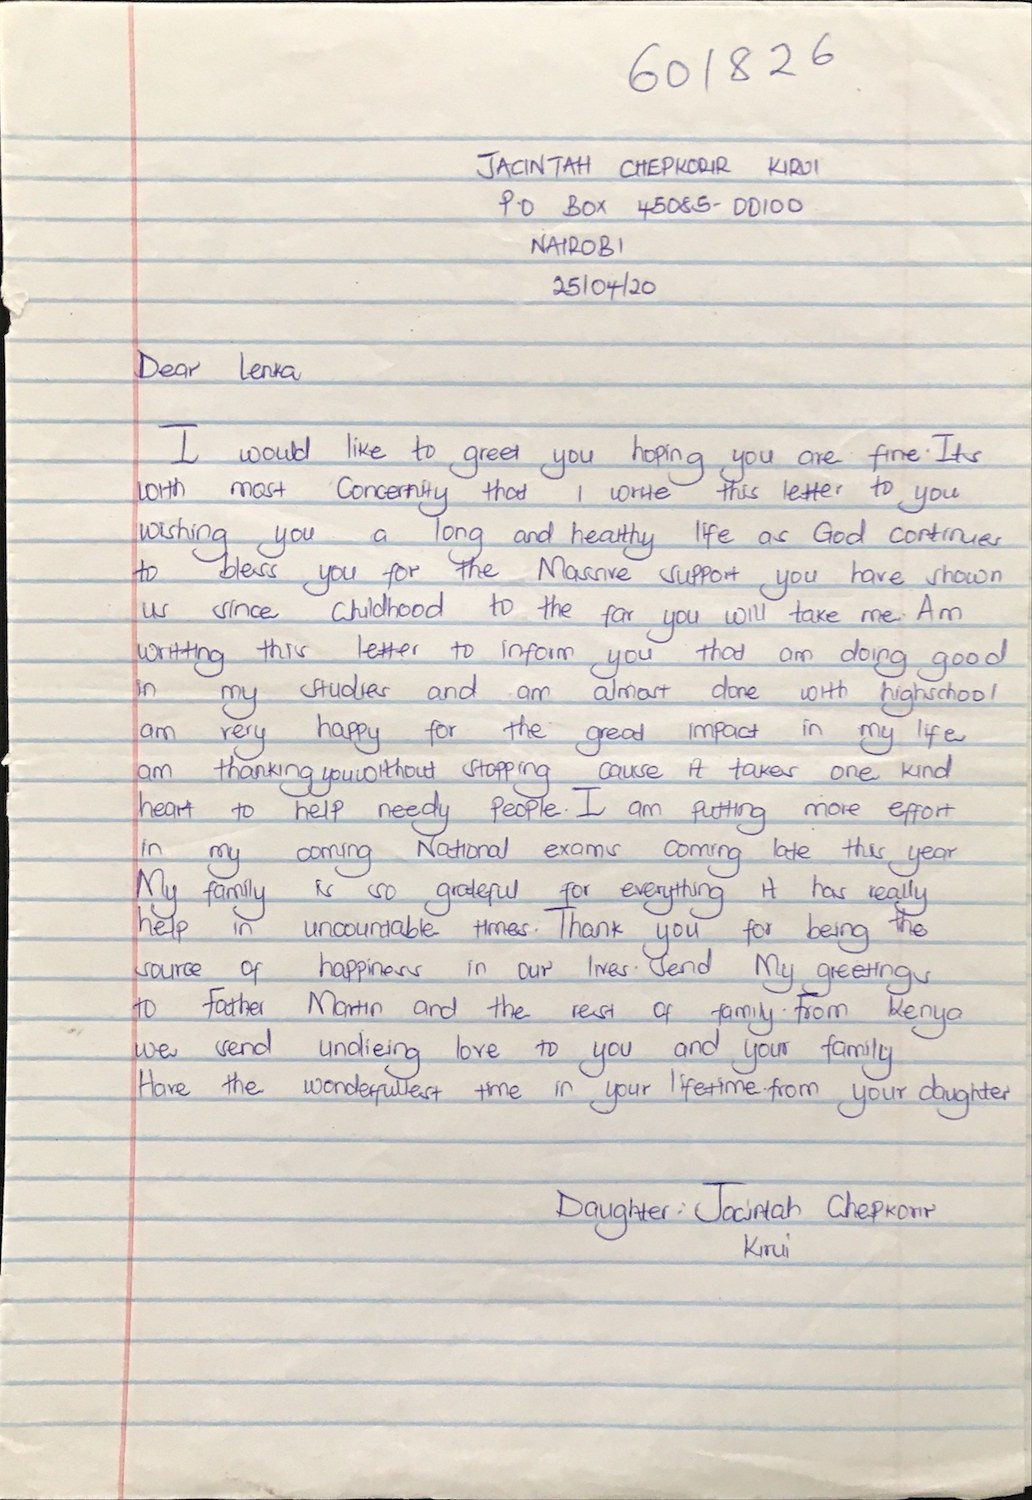 601826
JACINTAH CHEPKORIR KIRUI
P.O BOX 45085-00100
NAIROBI
25/04/20
Dear Lenka
I would like to greet you hoping you are fine. Its
with most Concernity that I write this letter to you
wishing you a long and healthy life as God continues
to bless you for the Massive support you have shown
us since Childhood to the far you will take me. Am
writting this letter to inform you that am doing good
in my studies and am almost done with highschool
am very happy for the great impact in my life
am thanking you without stopping cause it takes one kind
heart to help needy people. I am putting more effort
in my coming National exams coming late this year
My family is so grateful for everything it has really
help in uncountable times. Thank you for being the
source of happiness in our lives. Send My greetings
to Father Martin and the rest of family. From Kenya
we send undieing love to you and your family
Have the wonderfullest time in your lifetime. from your daughter
Daughter: Jacintah Chepkorir
Kirui